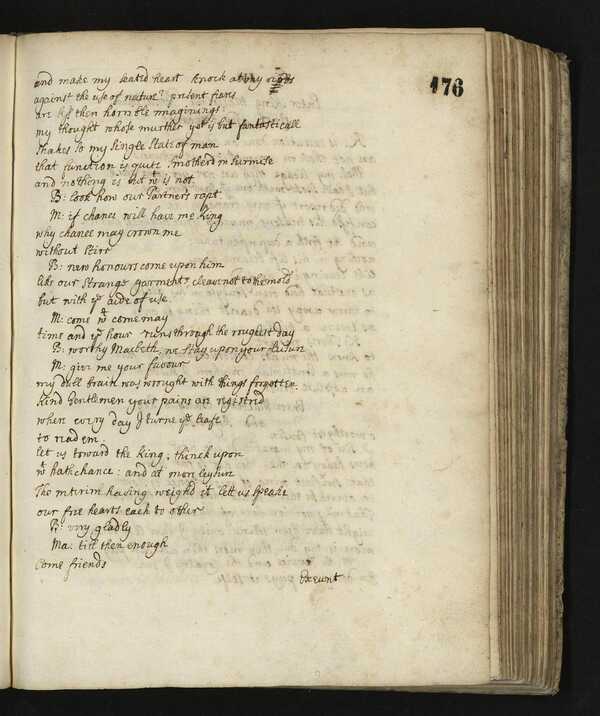 176
and make my seated heart knock at my ribs
against the use of nature? present fears
are less then horrible imaginings:
my thought whose murther yet is but fantasticall
shakes so my single state of man
that function is quite smotherd in surmise
and nothing is but wt is not
B: look how our Partners rapt
M: if chance will have me King
why chance may crown me
without stirr
B: new honours come upon him
like our strange garments cleave not to the mold
but with ye aide of use
M: come wt come may
time and ye hour runs through the roughest day
B: worthy Macbeth, we stay upon your leisur
M: give me your favour
my dull brain was wrought with things forgotten.
Kind Gentlemen your pains are registrd
when every day I turne ye leafe
to read em
let us toward the King; think upon
wt hath chance: and at more leysur
The interim having weighd it lett us speake
our free hearts each to other
B: very gladly
Ma: till then enough
Come friends
Exeunt